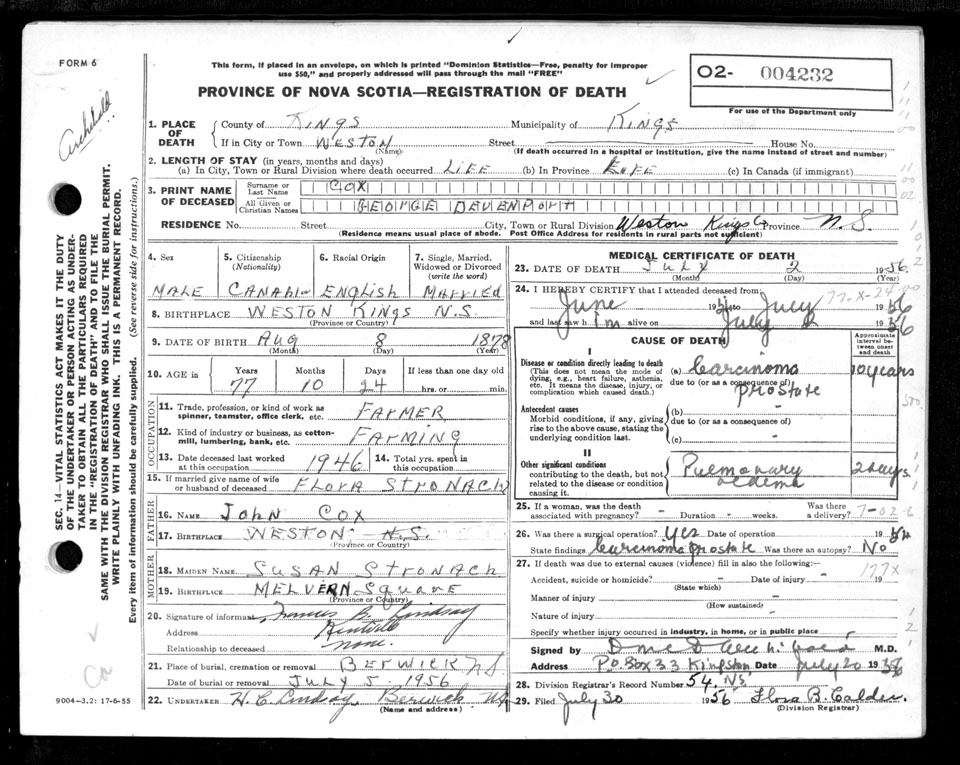 FORM 6
This form, if placed in an envelope, on which is printed "Dominion Statistics—Free, penalty for improper
use $50," and properly addressed will pass through the mail "FREE"
O2- 004232
PROVINCE OF NOVA SCOTIA—REGISTRATION OF DEATH
For use of the Department only
Archibald
SEC. 14—VITAL STATISTICS ACT MAKES IT THE DUTY
OF THE UNDERTAKER OR PERSON ACTING AS UNDER-
TAKER TO OBTAIN ALL THE PARTICULARS REQUIRED
IN THE "REGISTRATION OF DEATH" AND TO FILE THE
SAME WITH THE DIVISION REGISTRAR WHO SHALL ISSUE THE BURIAL PERMIT.
WRITE PLAINLY WITH UNFADING INK. THIS IS A PERMANENT RECORD.
Every item of information should be carefully supplied. (See reverse side for instructions.)
1. PLACE OF DEATH
County of KINGS Municipality of KINGS
If in City or Town WESTON Street House No.
(Name) (If death occurred in a hospital or institution, give the name instead of street and number)
2. LENGTH OF STAY (in years, months and days)
(a) In City, Town or Rural Division where death occurred LIFE (b) In Province LIFE (c) In Canada (if immigrant)
3. PRINT NAME OF DECEASED
Surname or Last Name COX
All Given or Christian Names GEORGE DEVENPORT
RESIDENCE No. Street City, Town or Rural Division Weston Kings Co Province N.S.
(Residence means usual place of abode. Post Office Address for residents in rural parts not sufficient)
4. Sex
MALE
5. Citizenship (Nationality)
CANADI-
6. Racial Origin
ENGLISH
7. Single, Married, Widowed or Divorced (write the word)
MARRIED
8. BIRTHPLACE WESTON KINGS N.S.
(Province or Country)
9. DATE OF BIRTH AUG 8 1878
(Month) (Day) (Year)
10. AGE in Years Months Days If less than one day old
77 10 24 hrs. or min.
OCCUPATION
11. Trade, profession, or kind of work as spinner, teamster, office clerk, etc. FARMER
12. Kind of industry or business, as cotton-mill, lumbering, bank, etc. FARMING
13. Date deceased last worked at this occupation 1946 14. Total yrs. spent in this occupation
15. If married give name of wife or husband of deceased FLORA STRONACH
FATHER
16. NAME JOHN COX
17. BIRTHPLACE WESTON N.S.
(Province or Country)
MOTHER
18. MAIDEN NAME SUSAN STRONACH
19. BIRTHPLACE MELVERN SQUARE
(Province or Country)
20. Signature of informant Francis B. Lindsay
Address
Relationship to deceased none.
21. Place of burial, cremation or removal BERWICK NS
Date of burial or removal JULY 5, 1956
22. UNDERTAKER H. C. Lindsay, Berwick
(Name and address)
9004-3.2: 17-6-55
MEDICAL CERTIFICATE OF DEATH
23. DATE OF DEATH JULY 2 1956
(Month) (Day) (Year)
24. I HEREBY CERTIFY that I attended deceased from:
June to July 1956
and last saw h im alive on July 2 1956
177-X-24
CAUSE OF DEATH
Approximate interval between onset and death
I
Disease or condition directly leading to death
(This does not mean the mode of dying, e.g., heart failure, asthenia, etc. It means the disease, injury, or complication which caused death.)
(a) Carcinoma 10 years
due to (or as a consequence of)
prostate
Antecedent causes
Morbid conditions, if any, giving rise to the above cause, stating the underlying condition last.
(b)
due to (or as a consequence of)
(c)
II
Other significant conditions
contributing to the death, but not related to the disease or condition causing it.
Pulmonary oedema 2 days
25. If a woman, was the death associated with pregnancy? Duration weeks. Was there a delivery?
26. Was there a surgical operation? Yes Date of operation 19 54
State findings Carcinoma prostate Was there an autopsy? No
27. If death was due to external causes (violence) fill in also the following:
Accident, suicide or homicide? Date of injury 19
(State which)
177X
Manner of injury
(How sustained)
Nature of injury
Specify whether injury occurred in industry, in home, or in public place
Signed by M.D.
Address P.O. Box 33 Kingston Date July 20 1956
28. Division Registrar's Record Number 54. NS
29. Filed July 30 1956 Flora B. Calder.
(Division Registrar)